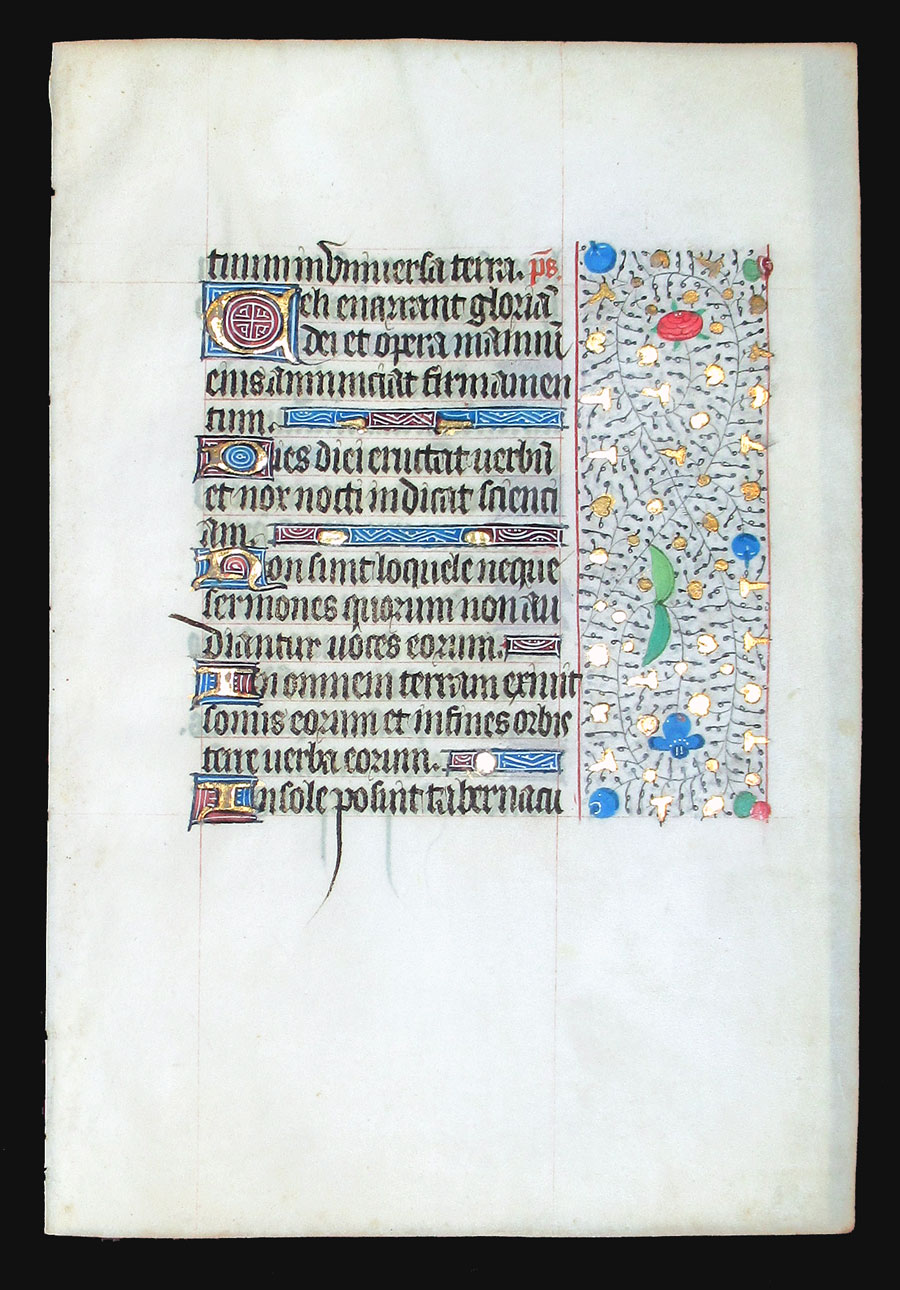 tuum in vniuersa terra. p̄s.
Celi enarrant gloriā
dei et opera manuū
eius annunciat firmamen
tum.
Dies diei eructat uerbū
et nox nocti indicat scienti
am.
Non sunt loquele neque
sermones quorum non au
diantur uoces eorum.
In omnem terram exiuit
sonus eorum et in fines orbis
terre uerba eorum.
In sole posuit tabernacu